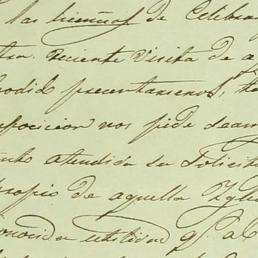 las licencias de Celebra
tra. reciente Visita de a
podido presentarsenos, te
posicion nos pide seam
atendida su Solicit
propio de aquella Ygle
conocida utilidad q.